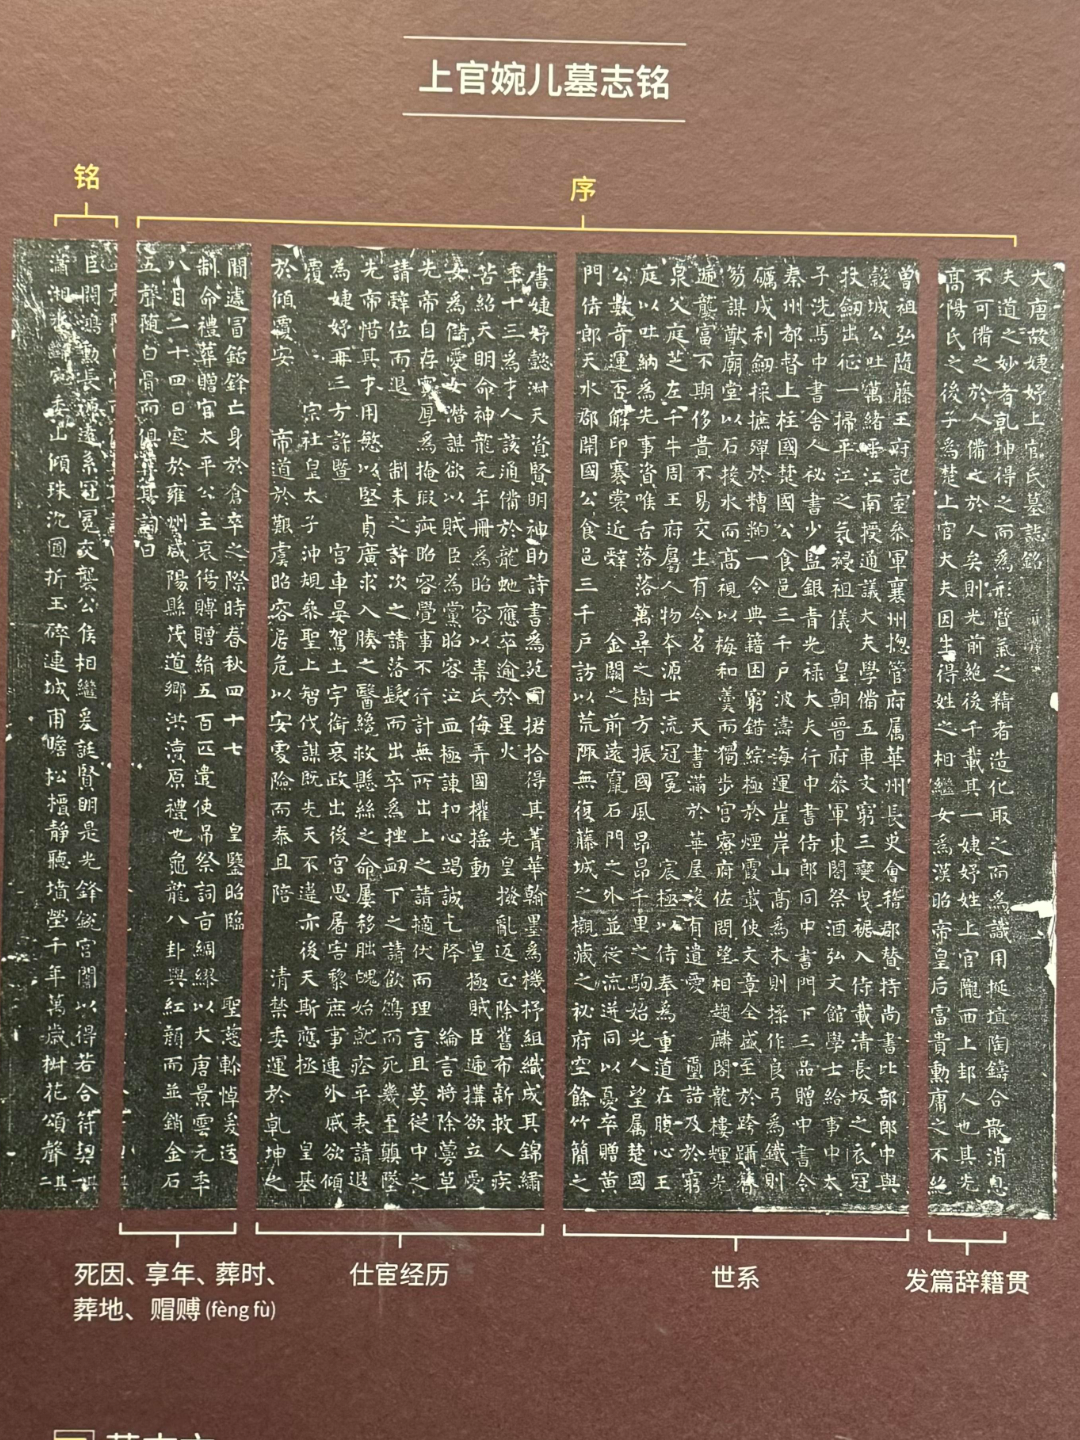 上官婉儿墓志铭
铭
序
大唐故婕妤上官氏墓誌銘
夫道之妙者乾坤得之而為形質氣之精者造化取之而為識用挻埴陶鑄合散消息
不可備之於人備之於人矣則光前絕後千載其一婕妤姓上官隴西上邽人也其先
高陽氏之後子為楚上官大夫因生得姓之相繼女為漢昭帝皇后富貴勳庸之不絕
曾祖弘隨藤王府記室叅軍襄州揔管府属華州長史會稽郡賛持尚書比部郎中與
穀城公吐萬緒平江南授通議大夫學備五車文窮三變曳裾入侍載清長坂之衣冠
投劒出征一掃平江之氛祲祖儀 皇朝晉府叅軍東閤祭酒弘文館學士給事中太
子洗馬中書舍人秘書少監銀青光祿大夫行中書侍郎同中書門下三品贈中書令
秦州都督上柱國楚國公食邑三千戶波濤海運崖岸山高為木則操作良弓為鐵則
礪成利劒採摭殫於糟粕一令典籍困窮錯綜極於煙霞載使文章全盛至於跨躡簪
笏謀猷廟堂以石投水而高視以梅和羹而獨步宮寮府佐問望相趨麟閣龍樓輝光
遞襲富不期侈貴不易交生有令名 天書滿於華屋沒有遺愛 璽誥及於窮
泉父庭芝左千牛周王府属人物本源士流冠冕 宸極以侍奉為重道在腹心王
庭以吐納為先事資喉舌落落萬尋之樹方振國風昂昂千里之駒始光人望属楚國
公數奇運否解印褰裳近辭 金闕之前遠竄石門之外並從流迸同以憂卒贈黃
門侍郎天水郡開國公食邑三千戶訪以荒陬無復藤城之櫬藏之秘府空餘竹簡之
書婕妤懿淑天資賢明神助詩書為苑囿捃拾得其菁華翰墨為機杼組織成其錦繡
年十三為才人該通備於龍蛇應卒逾於星火 先皇撥亂返正除舊布新救人疾
苦紹天明命神龍元年冊為昭容以韋氏侮弄國權搖動 皇極賊臣遞搆欲立愛
女為儲愛女潛謀欲以賊臣為黨昭容泣血極諫扣心竭誠乞降 綸言將除蔓草
先帝自存寬厚為掩瑕疵昭容覺事不行計無所出上之請擿伏而理言且莫從中之
請辭位而退 制未之許次之請落髮而出卒為挫衂下之請飲鴆而死幾至顛墜
先帝惜其才用慜以堅貞廣求入腠之醫纔救懸絲之命屢移朏魄始就痊平表請退
為婕妤再三方許暨 宮車晏駕土宇銜哀政出後宮思屠害黎庶事連外戚欲傾
覆 宗社皇太子沖規叅聖上智伐謀既先天不違亦後天斯應拯 皇基
於傾覆安 帝道於艱虞昭容居危以安處險而泰且陪 清禁委運於乾坤之
間遽冒銛鋒亡身於倉卒之際時春秋四十七 皇鑒昭臨 聖慈軫悼爰造
制命禮葬贈官太平公主哀傷賻贈絹五百匹遣使弔祭詞旨綢繆以大唐景雲元年
八月二十四日窆於雍州咸陽縣茂道鄉洪瀆原禮也龜龍八卦與紅顏而並銷金石
五聲隨白骨而俱葬其詞曰
臣閥鴻勳長源遠系冠冕交襲公侯相繼爰誕賢明是光鋒銳宮闈以得若合符契其一
瀟湘水斷宛委山傾珠沉圓折玉碎連城甫瞻松檟靜聽墳塋千年萬歲椒花頌聲其二
死因、享年、葬时、
葬地、赗赙(fèng fù)
仕宦经历
世系
发篇辞籍贯